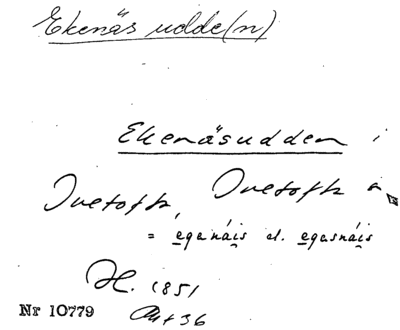 Ekenäs udde(n)
Ekenäsudden i
Ivetofta, Ivetofta
= egenäis el. egasnäis
H. 1851
Nr 10779